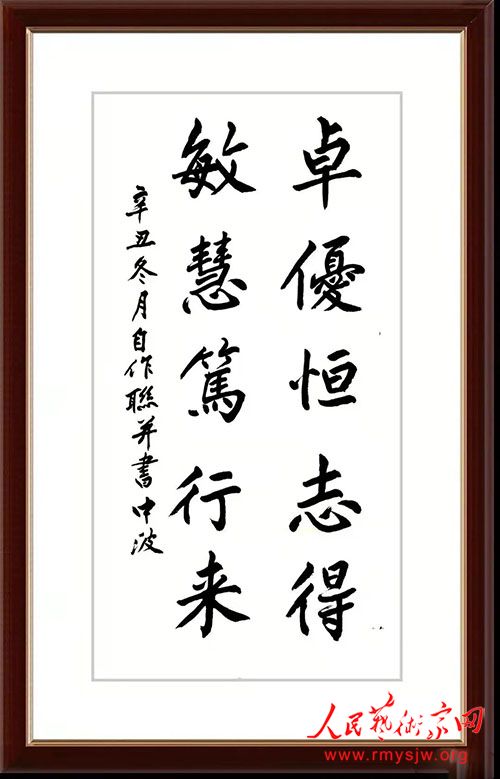 卓優恒志得
敏慧篤行来
辛丑冬月自作聯并書中波
人民藝術家网
www.rmysjw.org